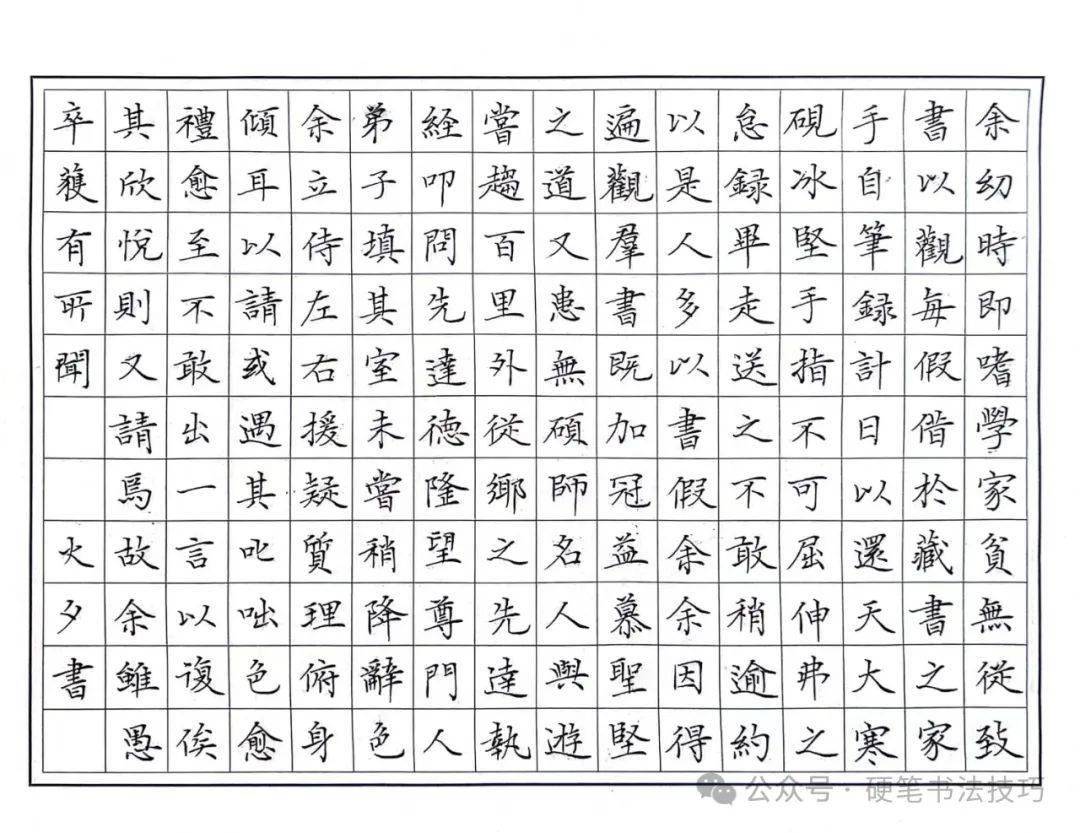 余幼時即嗜學家貧無從致
書以觀每假借於藏書之家
手自筆録計日以還天大寒
硯冰堅手指不可屈伸弗之
怠録畢走送之不敢稍逾約
以是人多以書假余余因得
遍觀羣書既加冠益慕聖堅
之道又患無碩師名人與遊
嘗趨百里外從鄉之先達執
經叩問先達德隆望尊門人
弟子填其室未嘗稍降辭色
余立侍左右援疑質理俯身
傾耳以請或遇其叱咄色愈
禮愈至不敢出一言以復俟
其欣悅則又請焉故余雖愚
卒獲有所聞
火夕書
公众号·硬笔书法技巧